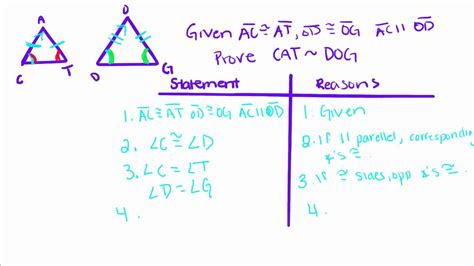 Given AC≅AT, OD≅OG AC∥OD
Prove CAT~DOG
A
C
T
D
G
Statement
Reasons
1. AC≅AT OD≅OG AC∥OD
1. Given
2. ∠C≅∠D
2. if || parellel, corresponding ∡'s ≅.
3. ∠C≅∠T
∠D≅∠G
3. If ≅ sides, opp ∡'s ≅.
4.
4.